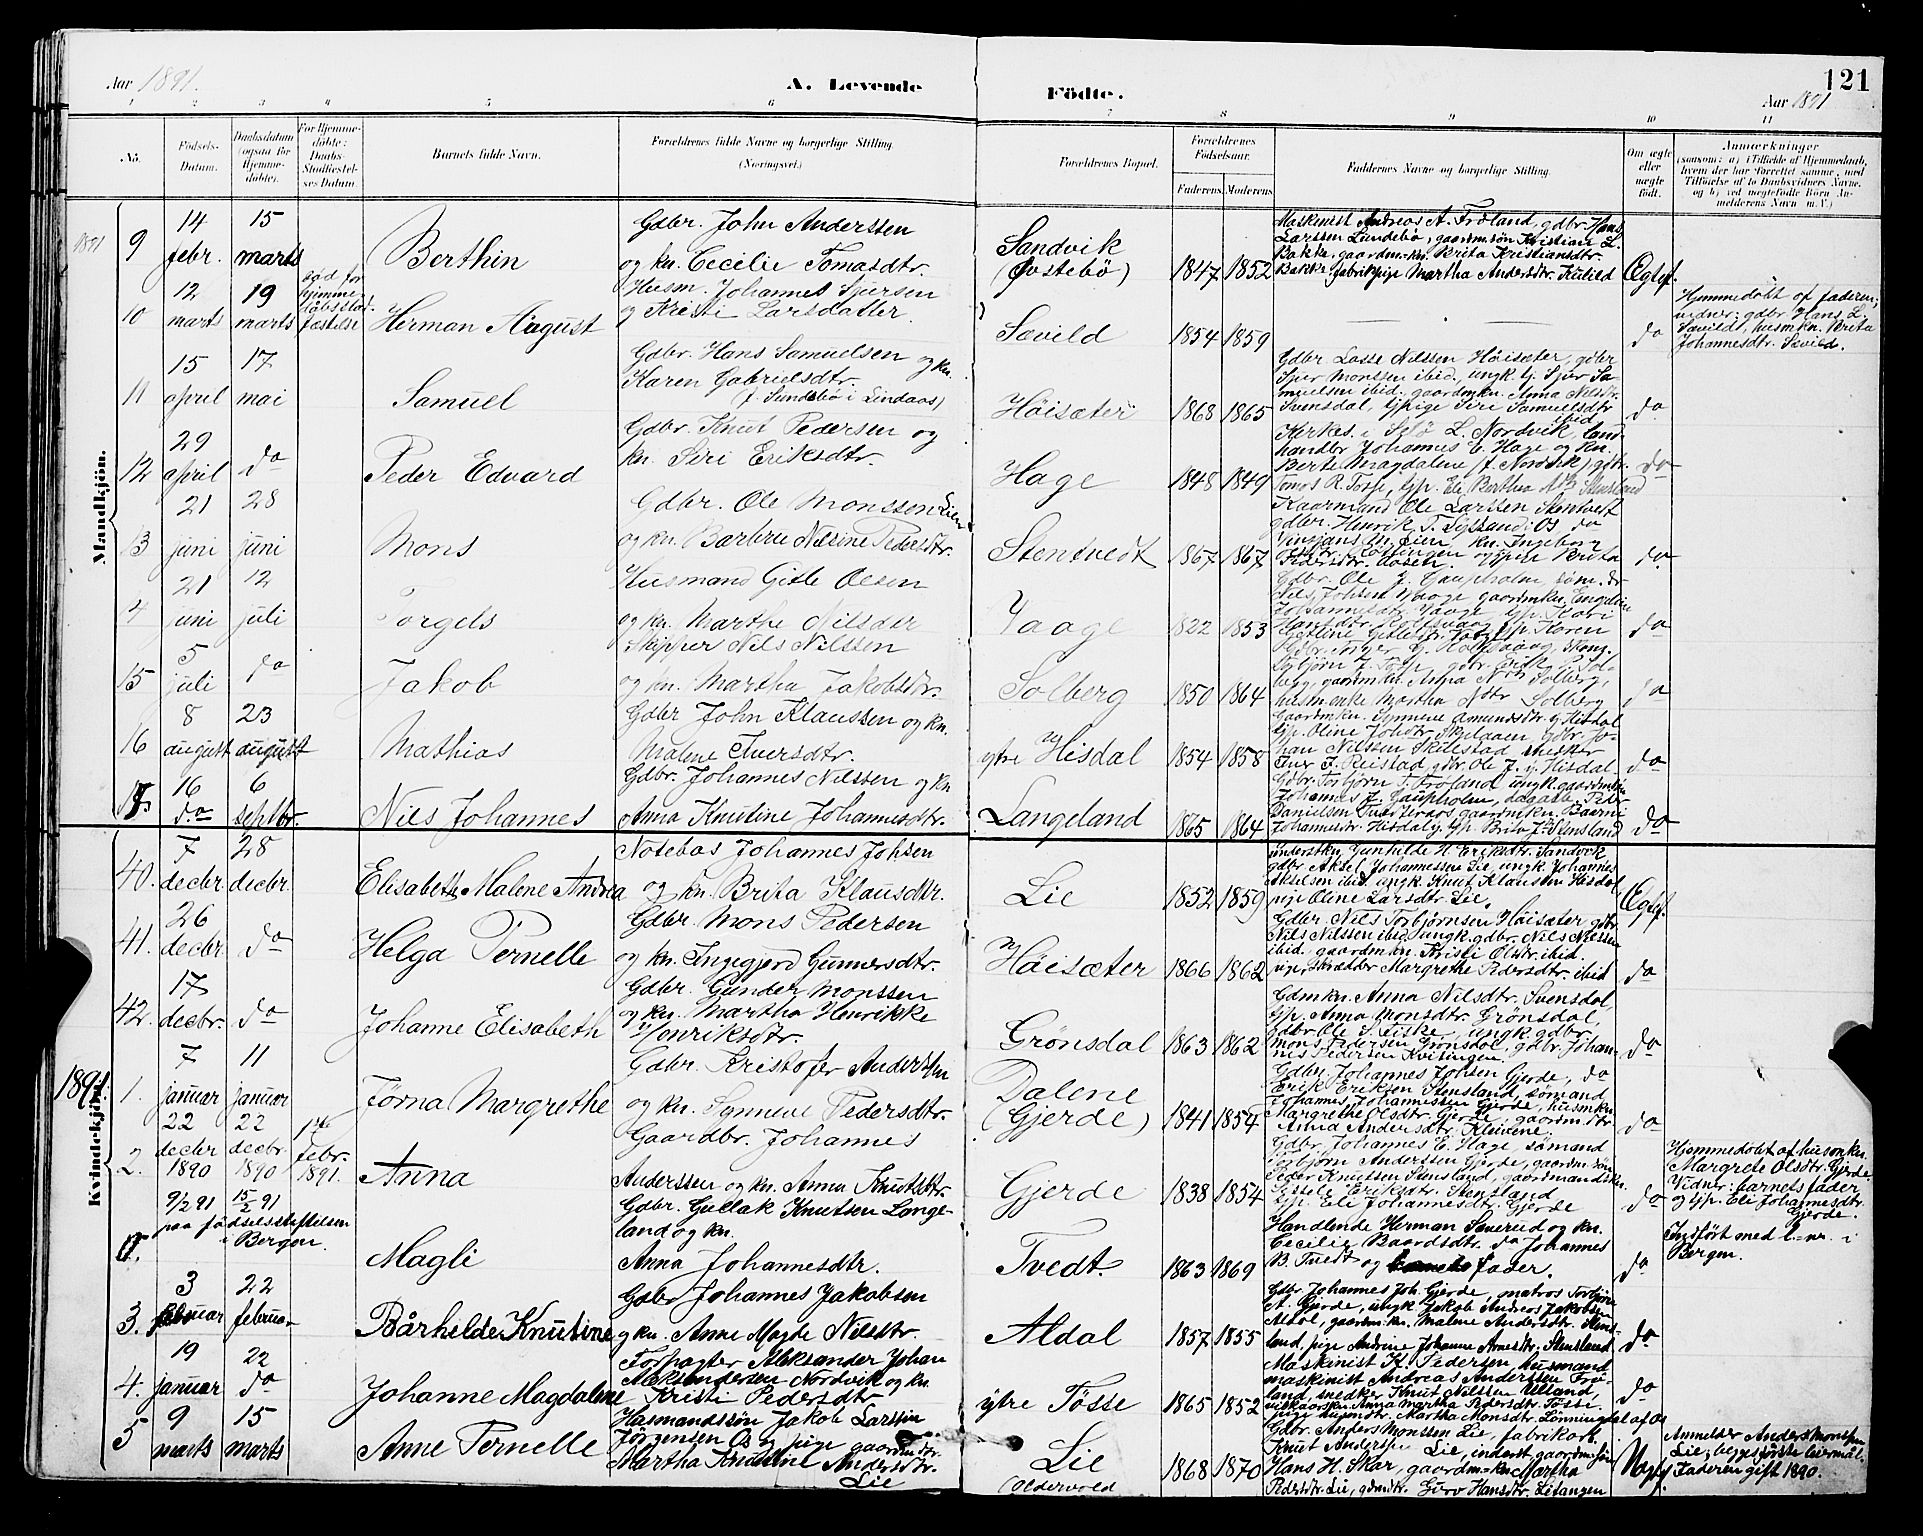 Aar 1891.
A. Levende Födte.
121
Aar 1891
1 2 3 4 5 6 7 8 9 10 11
No.
Födsels-Datum.
Daabsdatum (ogsaa for Hjemmedöbte).
For Hjemmedöbte: Daabs-Stadfæstelses Datum.
Barnets fulde Navn.
Forældrenes fulde Navne og borgerlige Stilling.
(Næringsvei.)
Forældrenes Bopæl.
Forældrenes Födselsaar.
Faderens. Moderens.
Faddernes Navne og borgerlige Stilling.
Om ægte eller uægte födt.
Anmærkninger
(saasom: a) i Tilfælde af Hjemmedaab, hvem der har forrettet samme, med Tilföielse af to Daabsvidners Navne, og b) ved uægtefödte Börn Anmelderens Navn m. V.)
Mandkjön.
1891
9 14 febr. 15 marts Berthin
Gdbr. John Anderssen
og kn. Cecilie Tomasdtr.
Sandvik (Øvstebö) 1847 1852
Maskinist Andreas A. Fröland, gdbr. Hans
Larssen Lundebö, gaardmsön Kristian L.
Bakke, gaardm.kn. Brita Kristiansdtr.
Bakke, fabrikpige Martha Andersdtr.
Ægtef.
10 12 marts 19 marts död för hjemmedåbsstadfæstelse Herman August
Husm. Johannes Sjursen
og Kristi Larsdatter.
Sævild 1854 1859 do
Hjemmedöbt af faderen;
vidner: gdbr Hans L.
Sævild, husmkn. Brita
Johannesdtr. Sævild.
11 15 april 17 mai Samuel
Gdbr. Hans Samuelsen og kn.
Karen Gabrielsdtr.
(f. Sundsbö i Lindaas)
Höisæter 1868 1865
Gdbr Lasse Nilssen Höisæter, gdbr
Sjur Monssen ibid. ungk. g. Sjur Sa-
muelsen ibid. gaardmkn. Anna Nilsdtr.
Svensdal, gpige Siri Samuelsdtr
ibid
do
12 29 april do Peder Edvard
Gdbr. Knut Pedersen og
kn. Siri Eriksdtr.
Hage 1848 1849
Kirkes. i L. Nordvik, land-
handler Johannes E. Hage og kn.
Berte Magdalene (f. Nordvik) gdbr.
Tomas R. Tösse, gp. Eli Berthea Stensland
do
13 21 juni 28 juni Mons
Gdbr. Ole Monssen Lien
og kn. Barbru Nilsine Pedersdtr.
Stentvedt 1867 1867
Kaarmand Ole Larssen Stentvedt
gdbr. Henrik T. Os do
kn. Ingeborg
Pedersdtr.
do
4 21 juni 12 juli Torgels
Husmand Gitle Olsen
og kn. Marthe Nilsdtr
Vaage 1822 1853
Gdbr. Ole J. Gaupholm, söm. dr
Nils Johsen Vaage gaardmkn. Engeline
Johannesdtr Vaage gp. Kari
Hansdtr gp. Karen
do
15 5 juli do Jakob
Skipper Nils Nilssen
og kn. Martha Jakobsdtr.
Solberg 1850 1864
Torbjörn J. Tösse, gdbr. Erik P. Sol-
berg, gaardmkn. Anna Solberg,
husmenke Martha Ndtr Solberg
do
16 8 august 23 august Mathias
Gdbr John Klaussen og kn.
Malene Iversdtr.
ytre Hisdal 1854 1858
Gaardmkn. Synneve Amundsdtr y. Hisdal
gp. Oline Johsdtr Skjeldaen, gdbr. Jo-
han Nilssen Skeilestad, snedker
Iver J. Reistad, gdbr. Ole J. y. Hisdal
do
17 16 do 6 sehtbr. Nils Johannes
Gdbr. Johannes Nilssen og kn
Anna Knutine Johannesdtr.
Langeland 1865 1864
Gdbr. Torbjörn T. Fröland, ungk. gaardmsön
Johannes J. Gaupholm, dagarb. Peder
Danielsen gaardmkn. Baarni
Johannesdtr. Hisdal y. gp. Brita J. Stensland
do
Kvindekjön.
40. 7 decbr 28 decbr. Elisabeth Malene Andrea
Notebas Johannes Johsen
og kn. Brita Klausdtr.
Lie 1852 1859
Inderstkn. Gunhilde H. Eriksdtr. Sandvik
gdbr Aksel Johannessen Lie, ungk. Johannes
Akselsen ibid, ungk. Knut Klaussen Hisdal
pige Oline Larsdtr Lie.
Ægtef.
41. 26 decbr do Helga Pernelle
Gdbr. Mons Pedersen
og kn. Ingegjerd Gunnersdtr.
Höisæter 1866 1862
Gdbr. Nils Torbjörnsen Höisæter gdbr.
Nils Nilssen ibid ungk. gdbr. Nils Nilssen
ibid. gaardmkn. Kristi Olsdtr. ibid,
Skrædder Margrethe Pedersdtr. ibid
do
42. 17 decbr. do Johanne Elisabeth
Gdbr. Gunder Monssen
og kn. Martha Henrikke
Henriksdtr.
Grönsdal 1863 1862
Gdmkn. Anna Nilsdtr. Svensdal,
gp. Anna Monsdtr. Grönsdal,
gdbr Ole S. Eiske, ungk gdbr.
Mons Pedersen Grönsdal, gdbr. Johan-
nes Pedersen Kvitingen
do
1891.
1. 7 januar 11 januar Jörna Margrethe
Gdbr. Kristofer Anderssen
og kn. Synneve Pedersdtr.
Dalene (Gjerde) 1841 1854
Gdbr. Johannes Johsen Gjerde, do
Erik Eriksen Stensland, sömand
Johannes Johannessen Gjerde, husmkn.
Margrethe Olsdtr. Gjerde, gaardm.dtr.
Anna Andersdtr. Kleivene.
do
2. 22 decbr 1890 22 decbr 1890 1ste febr. 1891. Anna
Gaardbr. Johannes
Anderssen og kn. Anna Knutsdtr
Gjerde 1838 1854
Gdbr. Johannes E. Hage, sömand
Torbjörn Anderssen Gjerde, gaardm.sön
Peder Knutsen Stensland, gaardmandskn.
Eriksdtr. Stensland
gp. Eli Johannesdtr. Gjerde
do
Hjemmedöbt af husmkn.
Margrete Olsdtr. Gjerde
Vidner: barnets fader
og gp. Eli Johannesdtr.
Gjerde.
0. 9/2 91 15/2 91
paa födselsstiftelsen
i Bergen.
Magli
Gdbr. Gullak Knutsen Lange-
land og kn.
Anna Johannesdtr.
Tvedt. 1863 1869
Handlende Herman Sæverud og kn.
Cecilie Baardsdtr. do Johannes
B. Tvedt og fader.
do
Indfört med l.-nr. i
Bergen.
3. 3 februar 22 februar Bårhelde Knutine
Gdbr Johannes Jakobsen
og kn. Anne Magde Nilsdtr.
Aldal 1857 1855
Gdbr Johannes Joh. Gjerde, matros Torbjörn
A. Gjerde, ungk Jakob Andreas Jakobsen
Aldal, gaardm.kn. Malene Andersdtr. Stens-
land, pige Andrine Johanne Arnesdtr. Stensland
do
4. 19 januar 22 do Johanne Magdalene
Forpagter Aleksander Johan
Aleksandersen Nordvik og kn
Kristi Pedersdtr
ytre Tösse 1865 1852
Maskinist K. Pedersen, husmand
maskinist Andreas Anderssen Frö-
land, snedker Knut Nilssen Ulsand,
Anna Martha Pedersdtr. Tösse,
pige husmdtr. Martha Monsdtr. Lönningdal af Os
do
5 9 marts 15 marts Anne Pernelle
Husmandssön Jakob Larssen
Jörgensen Os og pige gaardmdtr.
Martha Kristine Andersdtr.
Lie
Lie (Oldervold) 1868 1870
Gdbr. Anders Monssen Lie, fabrikarb.
Knut Anderssen Lie, inderst gaardm.sön
Hans H. Skar, gaardm.kn Martha
Pedersdtr. Lie, gdmdtr. Guro Hansdtr. Leiangen
Uægte
Anmelder Anders Monssen
Lie; begges förste leiermål.
Faderen gift 1890.